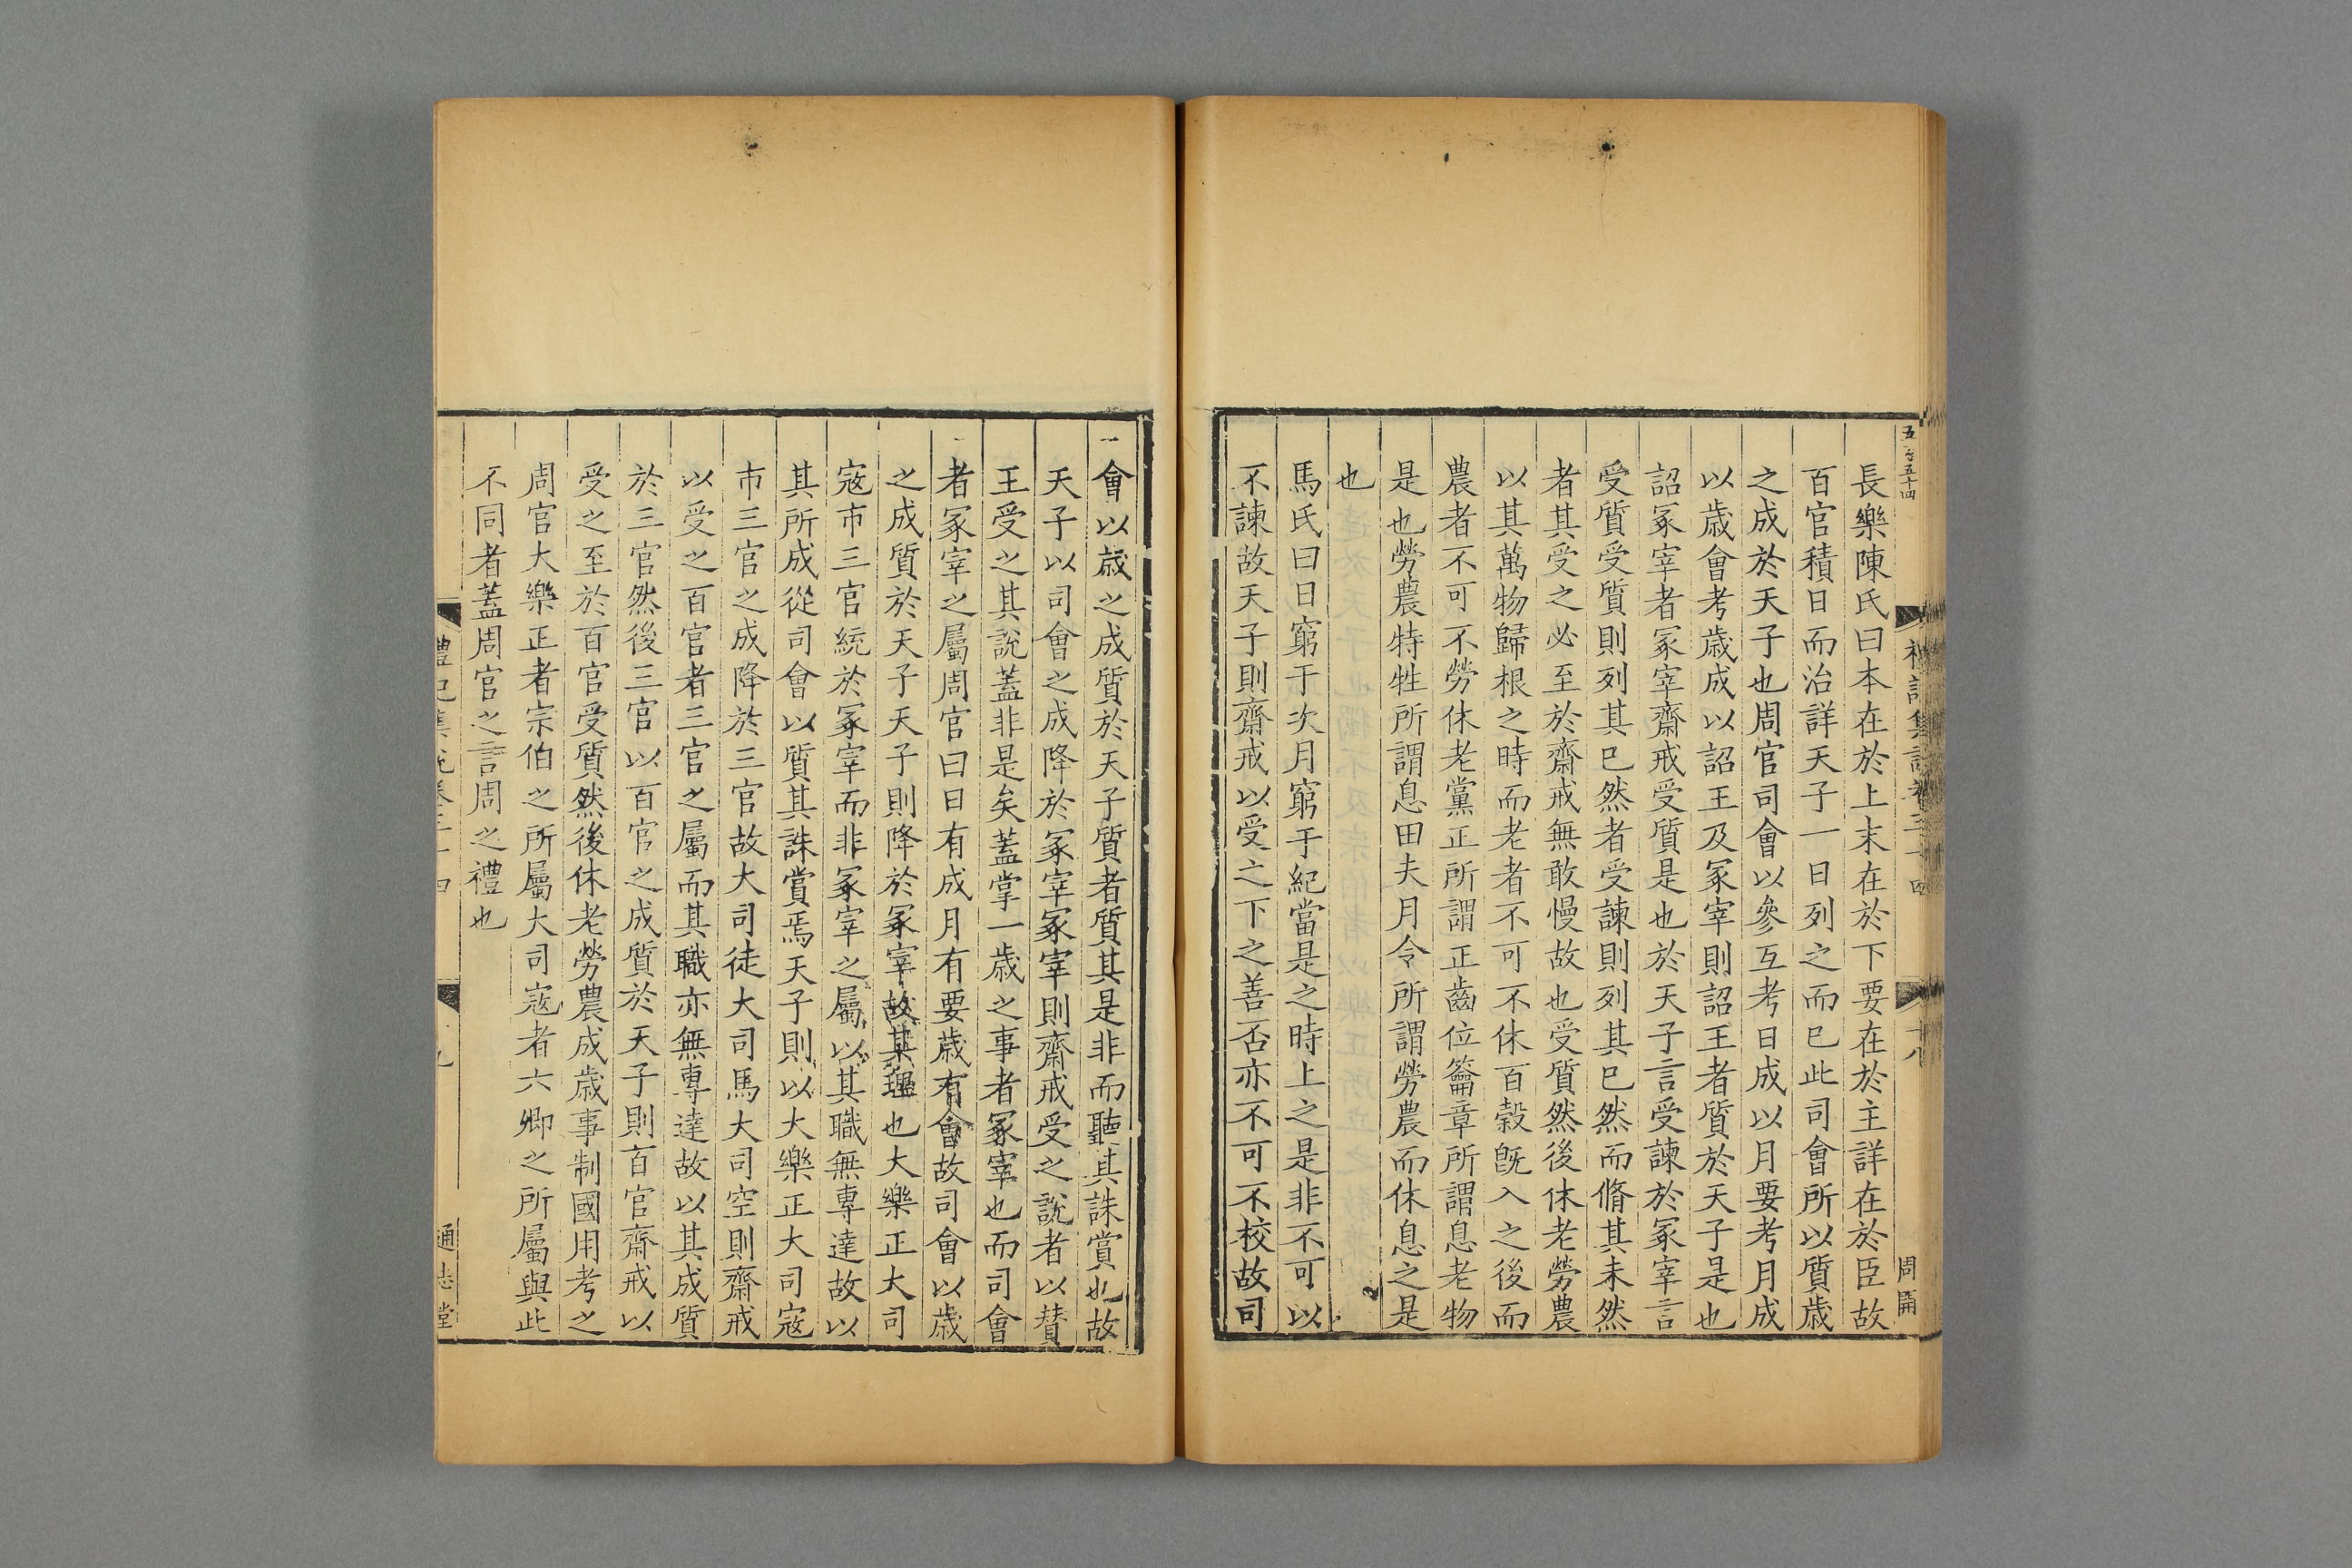 長樂陳氏曰本在於上末在於下要在於主詳在於臣故
百官積日而治詳天子一日列之而已此司會所以質歲
之成於天子也周官司會以參互考日成以月要考月成
以歲會考歲成以詔王及冢宰則詔王者質於天子是也
詔冢宰者冢宰齋戒受質是也於天子言受諫於冢宰言
受質受質則列其已然者受諫則列其已然而脩其未然
者其受之必至於齋戒無敢慢故也受質然後休老勞農
以其萬物歸根之時而老者不可不休百穀旣入之後而
農者不可不勞休老黨正所謂正齒位籥章所謂息老物
是也勞農特牲所謂息田夫月令所謂勞農而休息之是
也
馬氏曰日窮于次月窮于紀當是之時上之是非不可以
不諫故天子則齋戒以受之下之善否亦不可不校故司
會以歲之成質於天子質者質其是非而聽其誅賞也故
天子以司會之成降於冢宰冢宰則齋戒受之說者以贊
王受之其說蓋非是矣蓋掌一歲之事者冢宰也而司會
者冢宰之屬周官曰日有成月有要歲有會故司會以歲
之成質於天子天子則降於冢宰故其理也大樂正大司
寇市三官統於冢宰而非冢宰之屬以其職無專達故以
其所成從司會以質其誅賞焉天子則以大樂正大司寇
市三官之成降於三官故大司徒大司馬大司空則齋戒
以受之百官者三官之屬而其職亦無專達故以其成質
於三官然後三官以百官之成質於天子則百官齋戒以
受之至於百官受質然後休老勞農成歲事制國用考之
周官大樂正者宗伯之所屬大司寇者六卿之所屬與此
不同者蓋周官之言周之禮也
通志堂